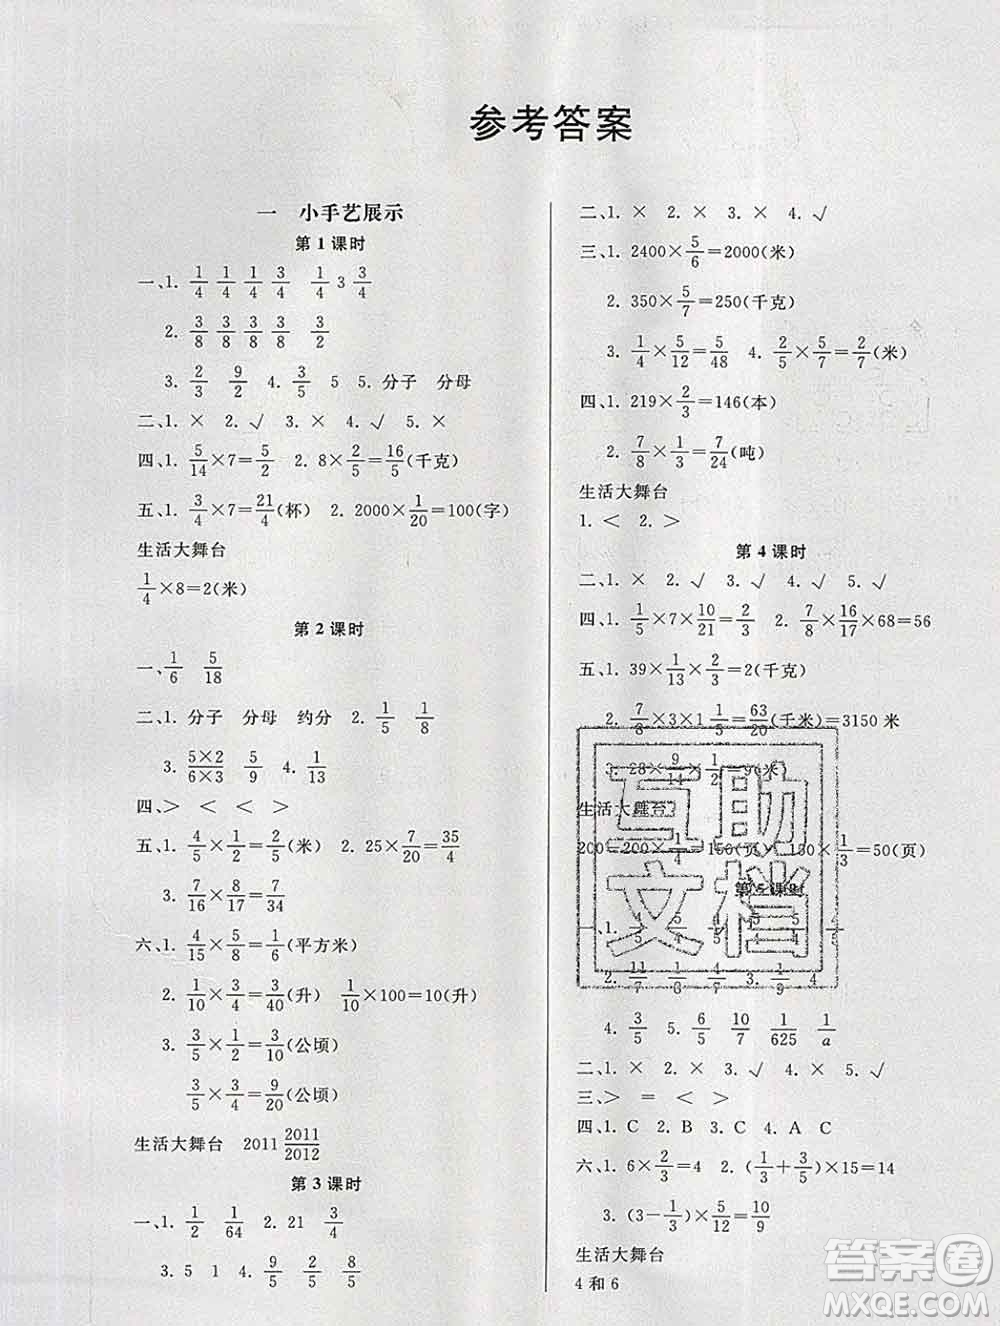 参考答案
一 小手艺展示
第1课时
一、1. 1/4 1/4 1/4 3/4 1/4 3 3/4
2. 3/8 3/8 3/8 3/2
3. 2/3 9/2 4. 3/5 5 5. 分子 分母
二、1. × 2. √ 3. × 4. √ 5. ×
四、1. 5/14×7=5/2 2. 8×2/5=16/5(千克)
五、1. 3/4×7=21/4(杯) 2. 2000×1/20=100(字)
生活大舞台
1/4×8=2(米)
第2课时
一、1/6 5/18
二、1. 分子 分母 约分 2. 1/5 1/8
3. 5×2/6×3 5/9 4. 1/10
四、> < < >
五、1. 4/5×1/2=2/5(米) 2. 25×7/20=35/4
3. 7/16×8/17=7/34
六、1. 4/15×5/8=1/6(平方米)
2. 1/10×3/4=3/40(升) 1/10×100=10(升)
3. 3/5×1/2=3/10(公顷)
3/5×3/4=9/20(公顷)
生活大舞台 2011 2011/2012
第3课时
一、1. 1/2 1/64 2. 21 3/4
3. 5 1 4. 9/5 2/5 2/5
二、1. × 2. × 3. × 4. √
三、1. 2400×5/6=2000(米)
2. 350×5/7=250(千克)
3. 1/4×5/12=5/48 4. 2/5×5/7=2/7(米)
四、1. 219×2/3=146(本)
2. 7/8×1/3=7/24(吨)
生活大舞台
1. < 2. >
第4课时
二、1. × 2. √ 3. √ 4. √ 5. √
四、1. 1/5×7×10/21=2/3 2. 7/8×16/17×68=56
五、1. 39×1/13×2/3=2(千克)
2. 7/8×3×1 1/5=63/20(千米)=3150米
3. 28×9/14×1/2=9(米)
生活大舞台
200-200×1/4=150(页) 150×1/3=50(页)
第5课时
一、1.
2. 11/7 1/8 7/9 3. 1/9 4
4. 3/5 5. 6/5 10/7 1/625 1/a
二、1. × 2. × 3. √ 4. × 5. √
三、> = < >
四、1. C 2. B 3. C 4. A C
六、1. 6×2/3=4 2. (1/3+3/5)×15=14
3. (3-1/3)×5/12=10/9
生活大舞台
4和6
互助
文档
答案圈
MXQE.COM